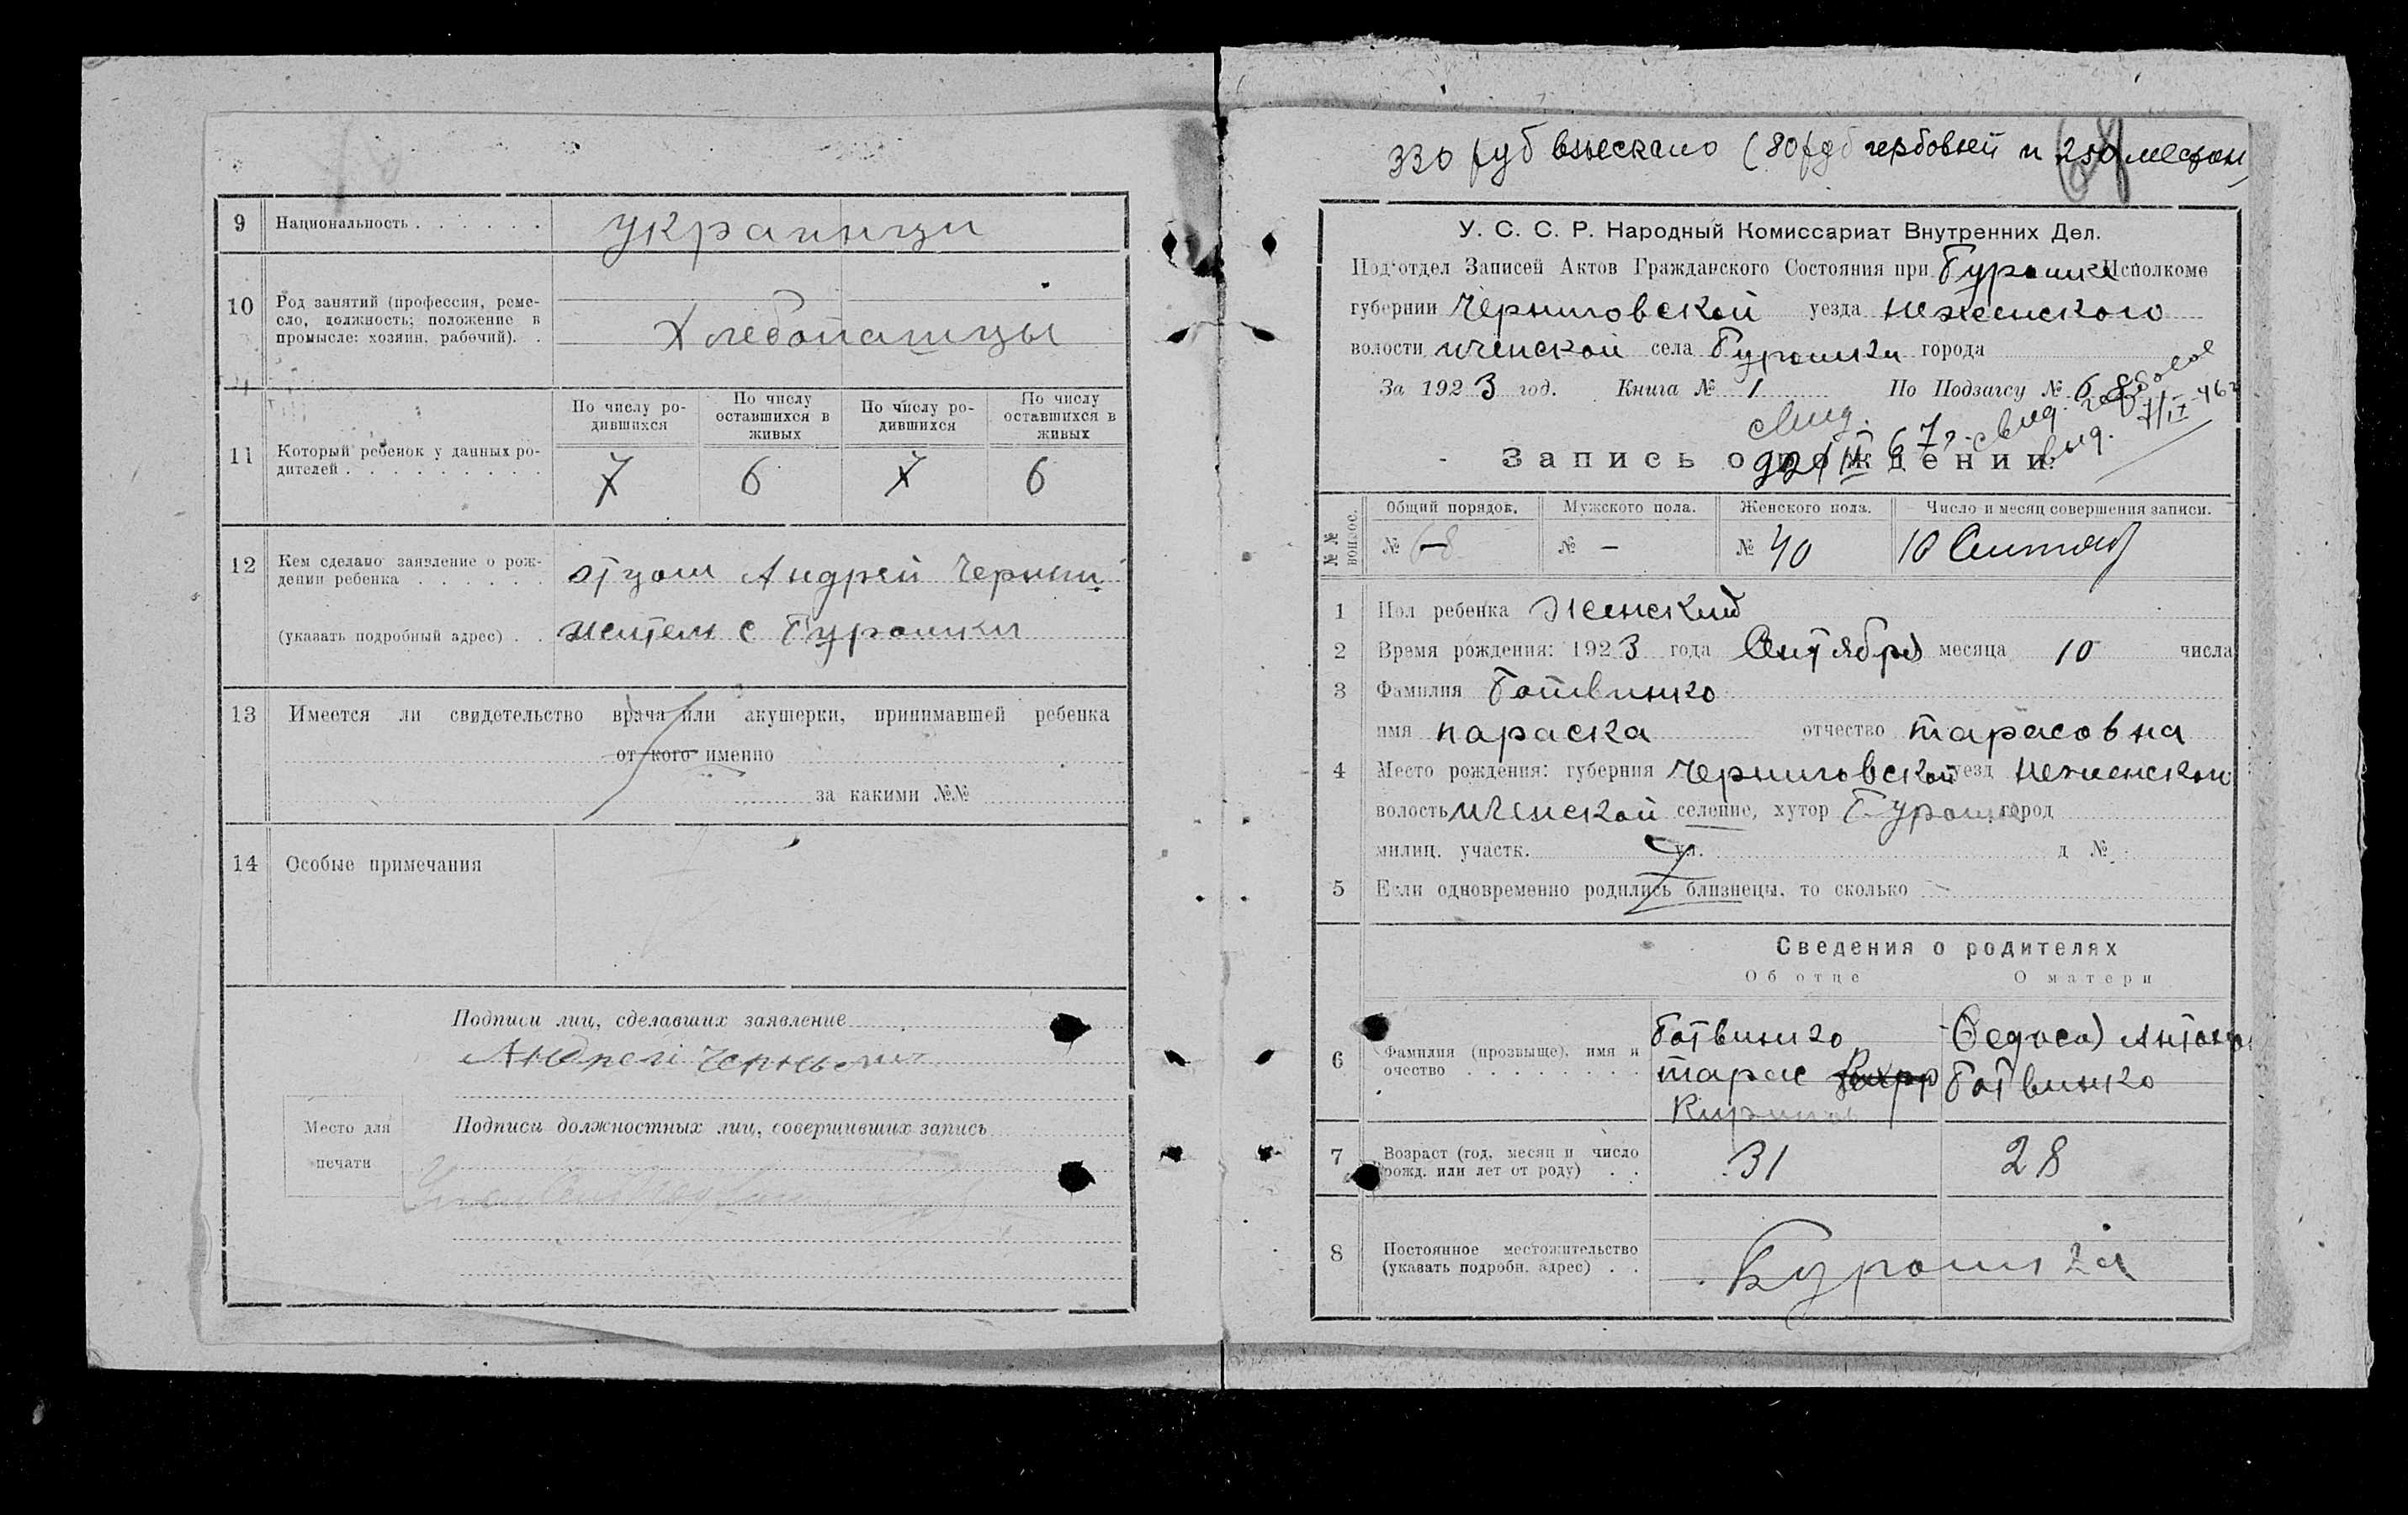 9 Национальность украинци
10 Род занятий (профессия, реме-
сло, должность; положение в
промысле: хозяин, рабочий). Хлебопашцы
11 Который ребенок у данных ро-
дителей
По числу ро-
дившихся
По числу
оставшихся в
живых
По числу ро-
дившихся
По числу
оставшихся в
живых
7 6 7 6
12 Кем сделано заявление о рож-
дении ребенка отцом Андрей Черныш
(указать подробный адрес) жител с Буромки
13 Имеется ли свидетельство врача или акушерки, принимавшей ребенка
от кого именно
за какими №№
14 Особые примечания
Подписи лиц, сделавших заявление
Андрей
Место для
печати
Подписи должностных лиц, совершивших запись
330 руб взыскано (80 руб гербовей и 250 местн
68
У. С. С. Р. Народный Комиссариат Внутренних Дел.
Подотдел Записей Актов Гражданского Состояния при Буромке Исполкоме
губернии Черниговской уезда Неженского
волости Иченской села Буромки города
За 1923 год. Книга № 1 По Подзагсу № 68
Запись о рождении
№№ вопрос.
Общий порядок. Мужского пола. Женского пола. Число и месяц совершения записи.
№ 68 № — № 40 10 Синтяб
1 Пол ребенка Женский
2 Время рождения: 1923 года Синтября месяца 10 числа
3 Фамилия Ботвинко
имя Параска отчество Тарасовна
4 Место рождения: губерния Черниговской уезд Неженского
волость Иченской селение, хутор Буромке город
милиц. участк. ул. д №
5 Если одновременно родились близнецы, то сколько
Сведения о родителях
Об отце О матери
6 Фамилия (прозвыще), имя и
очество
Ботвинко
Тарас
Федоса Антонов
Ботвинко
7 Возраст (год, месяц и число
рожд. или лет от роду) 31 28
8 Постоянное местожительство
(указать подробн. адрес) Буромка